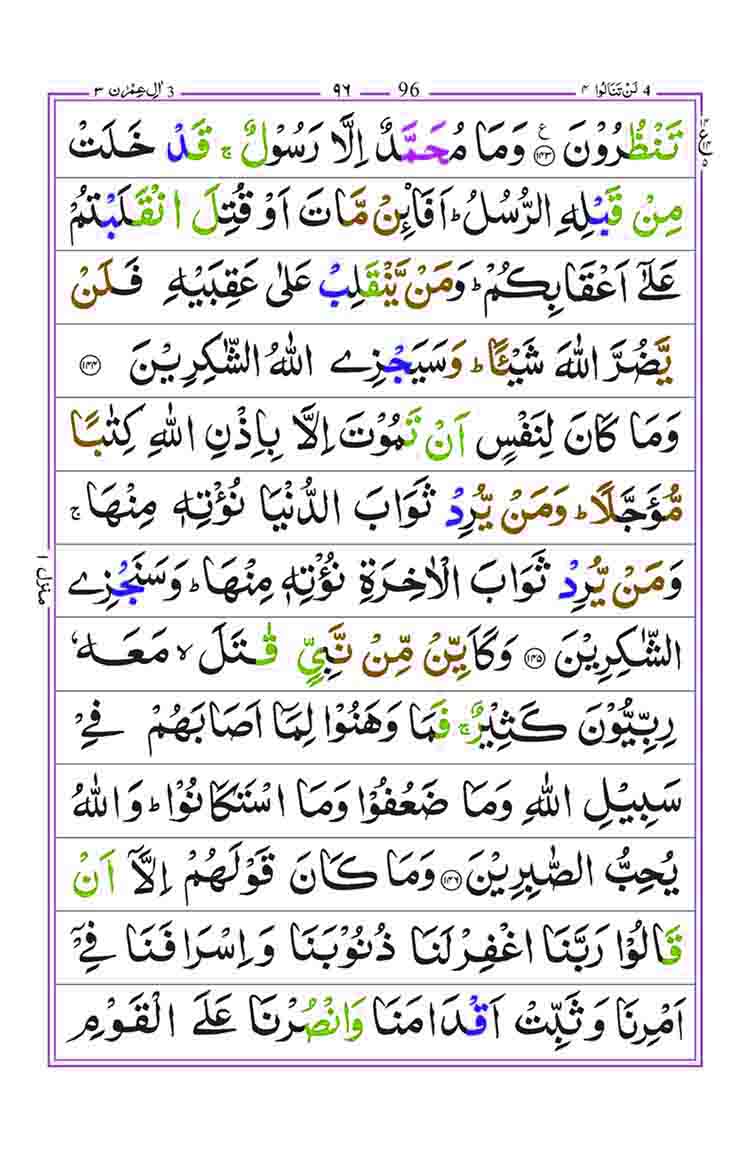 4 لَنْ تَنَالُوا ۴ 96 ۹۶ 3 اٰلِ عِمْرٰن ۳
ع
تَنْظُرُوْنَ ۝۱۴۳ وَمَا مُحَمَّدٌ اِلَّا رَسُوْلٌ ۚ قَدْ خَلَتْ
مِنْ قَبْلِهِ الرُّسُلُ ؕ اَفَا۟ئِنْ مَّاتَ اَوْ قُتِلَ انْقَلَبْتُمْ
عَلٰۤى اَعْقَابِكُمْ ؕ وَمَنْ يَّنْقَلِبْ عَلٰى عَقِبَيْهِ فَلَنْ
يَّضُرَّ اللّٰهَ شَيْـًٔا ؕ وَسَيَجْزِى اللّٰهُ الشّٰكِرِيْنَ ۝۱۴۴
وَمَا كَانَ لِنَفْسٍ اَنْ تَمُوْتَ اِلَّا بِاِذْنِ اللّٰهِ كِتٰبًا
مُّؤَجَّلًا ؕ وَمَنْ يُّرِدْ ثَوَابَ الدُّنْيَا نُؤْتِهٖ مِنْهَا ۚ
وَمَنْ يُّرِدْ ثَوَابَ الْاٰخِرَةِ نُؤْتِهٖ مِنْهَا ؕ وَسَنَجْزِى
الشّٰكِرِيْنَ ۝۱۴۵ وَكَاَيِّنْ مِّنْ نَّبِيٍّ قٰتَلَ ۙ مَعَهٗ
رِبِّيُّوْنَ كَثِيْرٌ ۚ فَمَا وَهَنُوْا لِمَاۤ اَصَابَهُمْ فِيْ
سَبِيْلِ اللّٰهِ وَمَا ضَعُفُوْا وَمَا اسْتَكَانُوْا ؕ وَاللّٰهُ
يُحِبُّ الصّٰبِرِيْنَ ۝۱۴۶ وَمَا كَانَ قَوْلَهُمْ اِلَّاۤ اَنْ
قَالُوْا رَبَّنَا اغْفِرْ لَنَا ذُنُوْبَنَا وَاِسْرَافَنَا فِيْۤ
اَمْرِنَا وَثَبِّتْ اَقْدَامَنَا وَانْصُرْنَا عَلَى الْقَوْمِ
منزل ۱